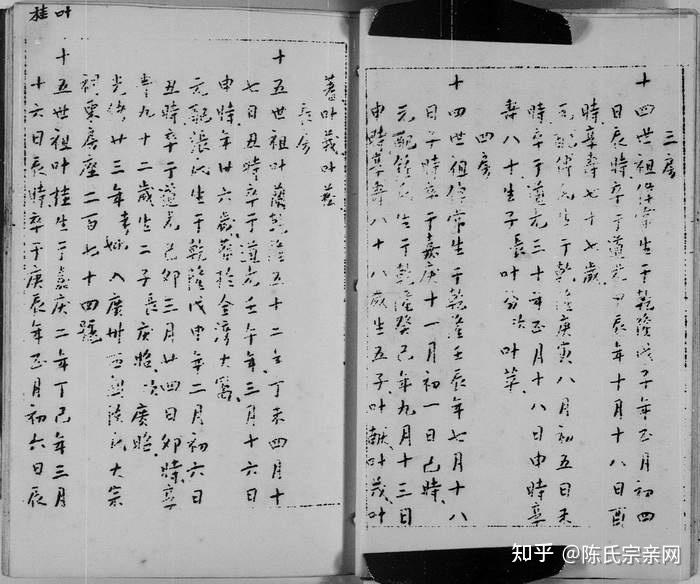 三房
十四世祖仕生于乾隆戊子年正月初四
日辰時卒于道光甲辰年十月十八日酉
時卒壽七十七歲
元配傅氏生于乾隆庚寅八月初五日未
時卒于道光三十年正月十八日申時享
壽八十生子長叶芬次叶華
四房
十四世祖常生于乾隆壬辰年七月十八
日子時卒于嘉庚十一月初一日巳時
元配鍾氏生于乾隆癸巳年九月十三日
申時享壽八十八歲生五子叶献叶茂叶
蕃叶莪叶
長房
十五世祖叶蘭乾隆五十二年丁未四月十
七日丑時卒于道光壬午年三月十六日
申時年廿六歲葬於金灣大窩
元配張氏生于乾隆戊申年二月初六日
丑時卒于道光己卯三月廿四日卯時享
壽九十二歲生二子長庚昭次廣昭
光緒廿三年考妣入廣州西陳氏大宗
祠東房座二百七十四號
叶桂
十五世祖叶桂生于嘉庚二年丁巳年三月
十六日辰時卒于庚辰年正月初六日辰
知乎 @陈氏宗亲网